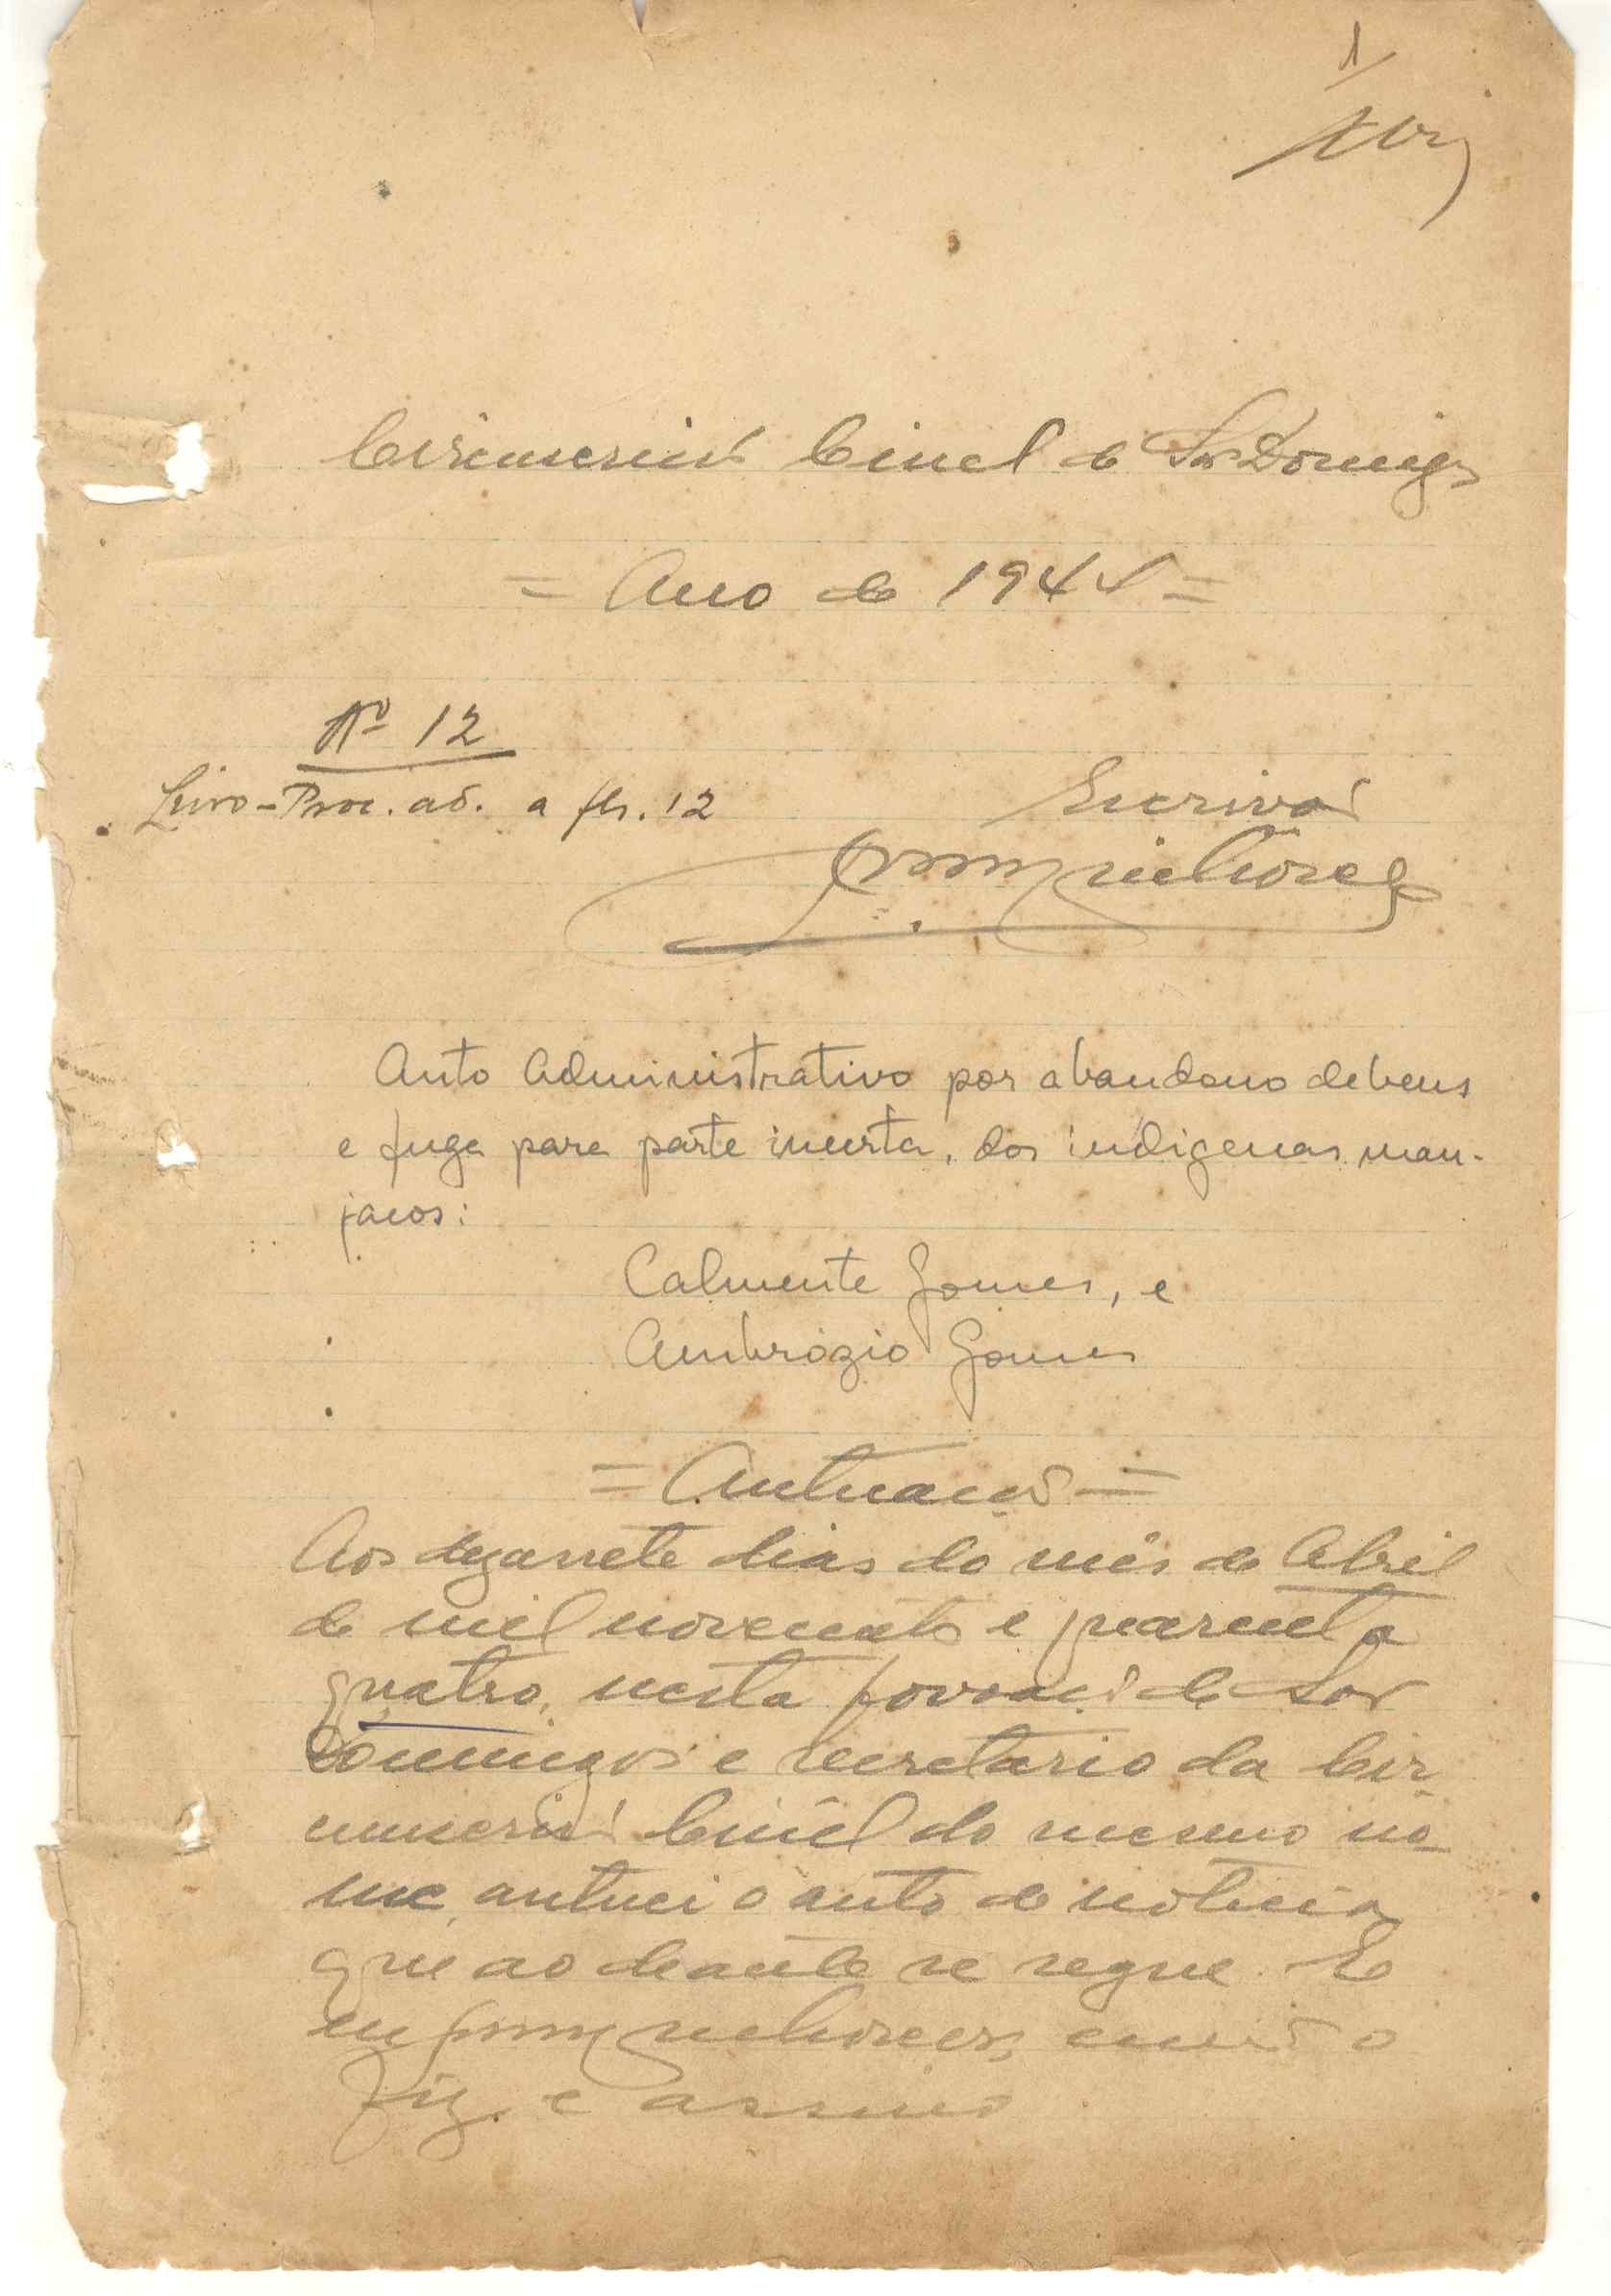 1
Circunscrição Civil de São Domingos
= Ano de 1944 =
Nº 12
Livro - Proc. ad. a fls. 12
Escrivão
Auto Administrativo por abandono de bens
e fuga para parte incerta, dos indigenas man-
jacos:
Calmente Gomes, e
Ambrózio Gomes
= Autuação =
Aos dezassete dias do mês de Abril
de mil novecentos e quarenta
quatro, nesta povoação de São
Domingos e secretaria da Cir
cunscrição Civil do mesmo no
me, autuei o auto de noticia
que ao deante se segue. E
eu escrivão o
fiz e assino